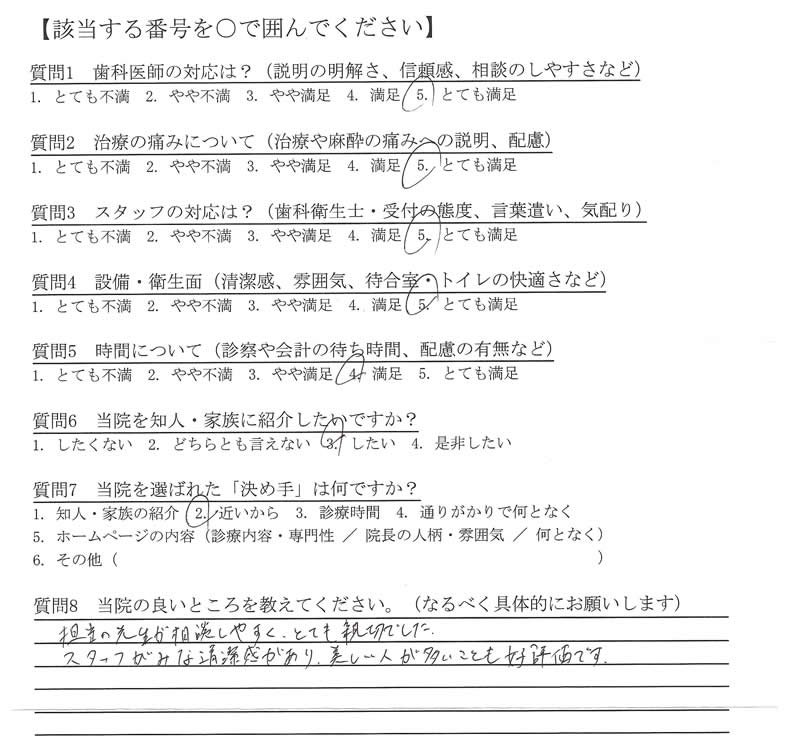 【該当する番号を○で囲んでください】
質問1 歯科医師の対応は？（説明の明解さ、信頼感、相談のしやすさなど）
1. とても不満 2. やや不満 3. やや満足 4. 満足 5. とても満足
質問2 治療の痛みについて（治療や麻酔の痛みへの説明、配慮）
1. とても不満 2. やや不満 3. やや満足 4. 満足 5. とても満足
質問3 スタッフの対応は？（歯科衛生士・受付の態度、言葉遣い、気配り）
1. とても不満 2. やや不満 3. やや満足 4. 満足 5. とても満足
質問4 設備・衛生面（清潔感、雰囲気、待合室・トイレの快適さなど）
1. とても不満 2. やや不満 3. やや満足 4. 満足 5. とても満足
質問5 時間について（診察や会計の待ち時間、配慮の有無など）
1. とても不満 2. やや不満 3. やや満足 4. 満足 5. とても満足
質問6 当院を知人・家族に紹介したいですか？
1. したくない 2. どちらとも言えない 3. したい 4. 是非したい
質問7 当院を選ばれた「決め手」は何ですか？
1. 知人・家族の紹介 2. 近いから 3. 診療時間 4. 通りがかりで何となく
5. ホームページの内容（診療内容・専門性 ／ 院長の人柄・雰囲気 ／ 何となく）
6. その他（ ）
質問8 当院の良いところを教えてください。（なるべく具体的にお願いします）
担当の先生が相談しやすく、とても親切でした。
スタッフがみな清潔感があり、美しい人が多いことも好評価です。